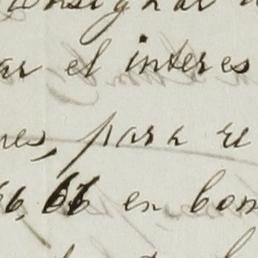 consignar
ar el interes
nes, para re
66,66 en bon